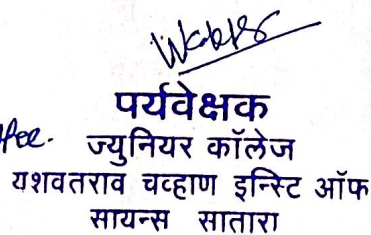 पर्यवेक्षक
ज्युनियर कॉलेज
यशवतराव चव्हाण इन्स्टि ऑफ
सायन्स सातारा